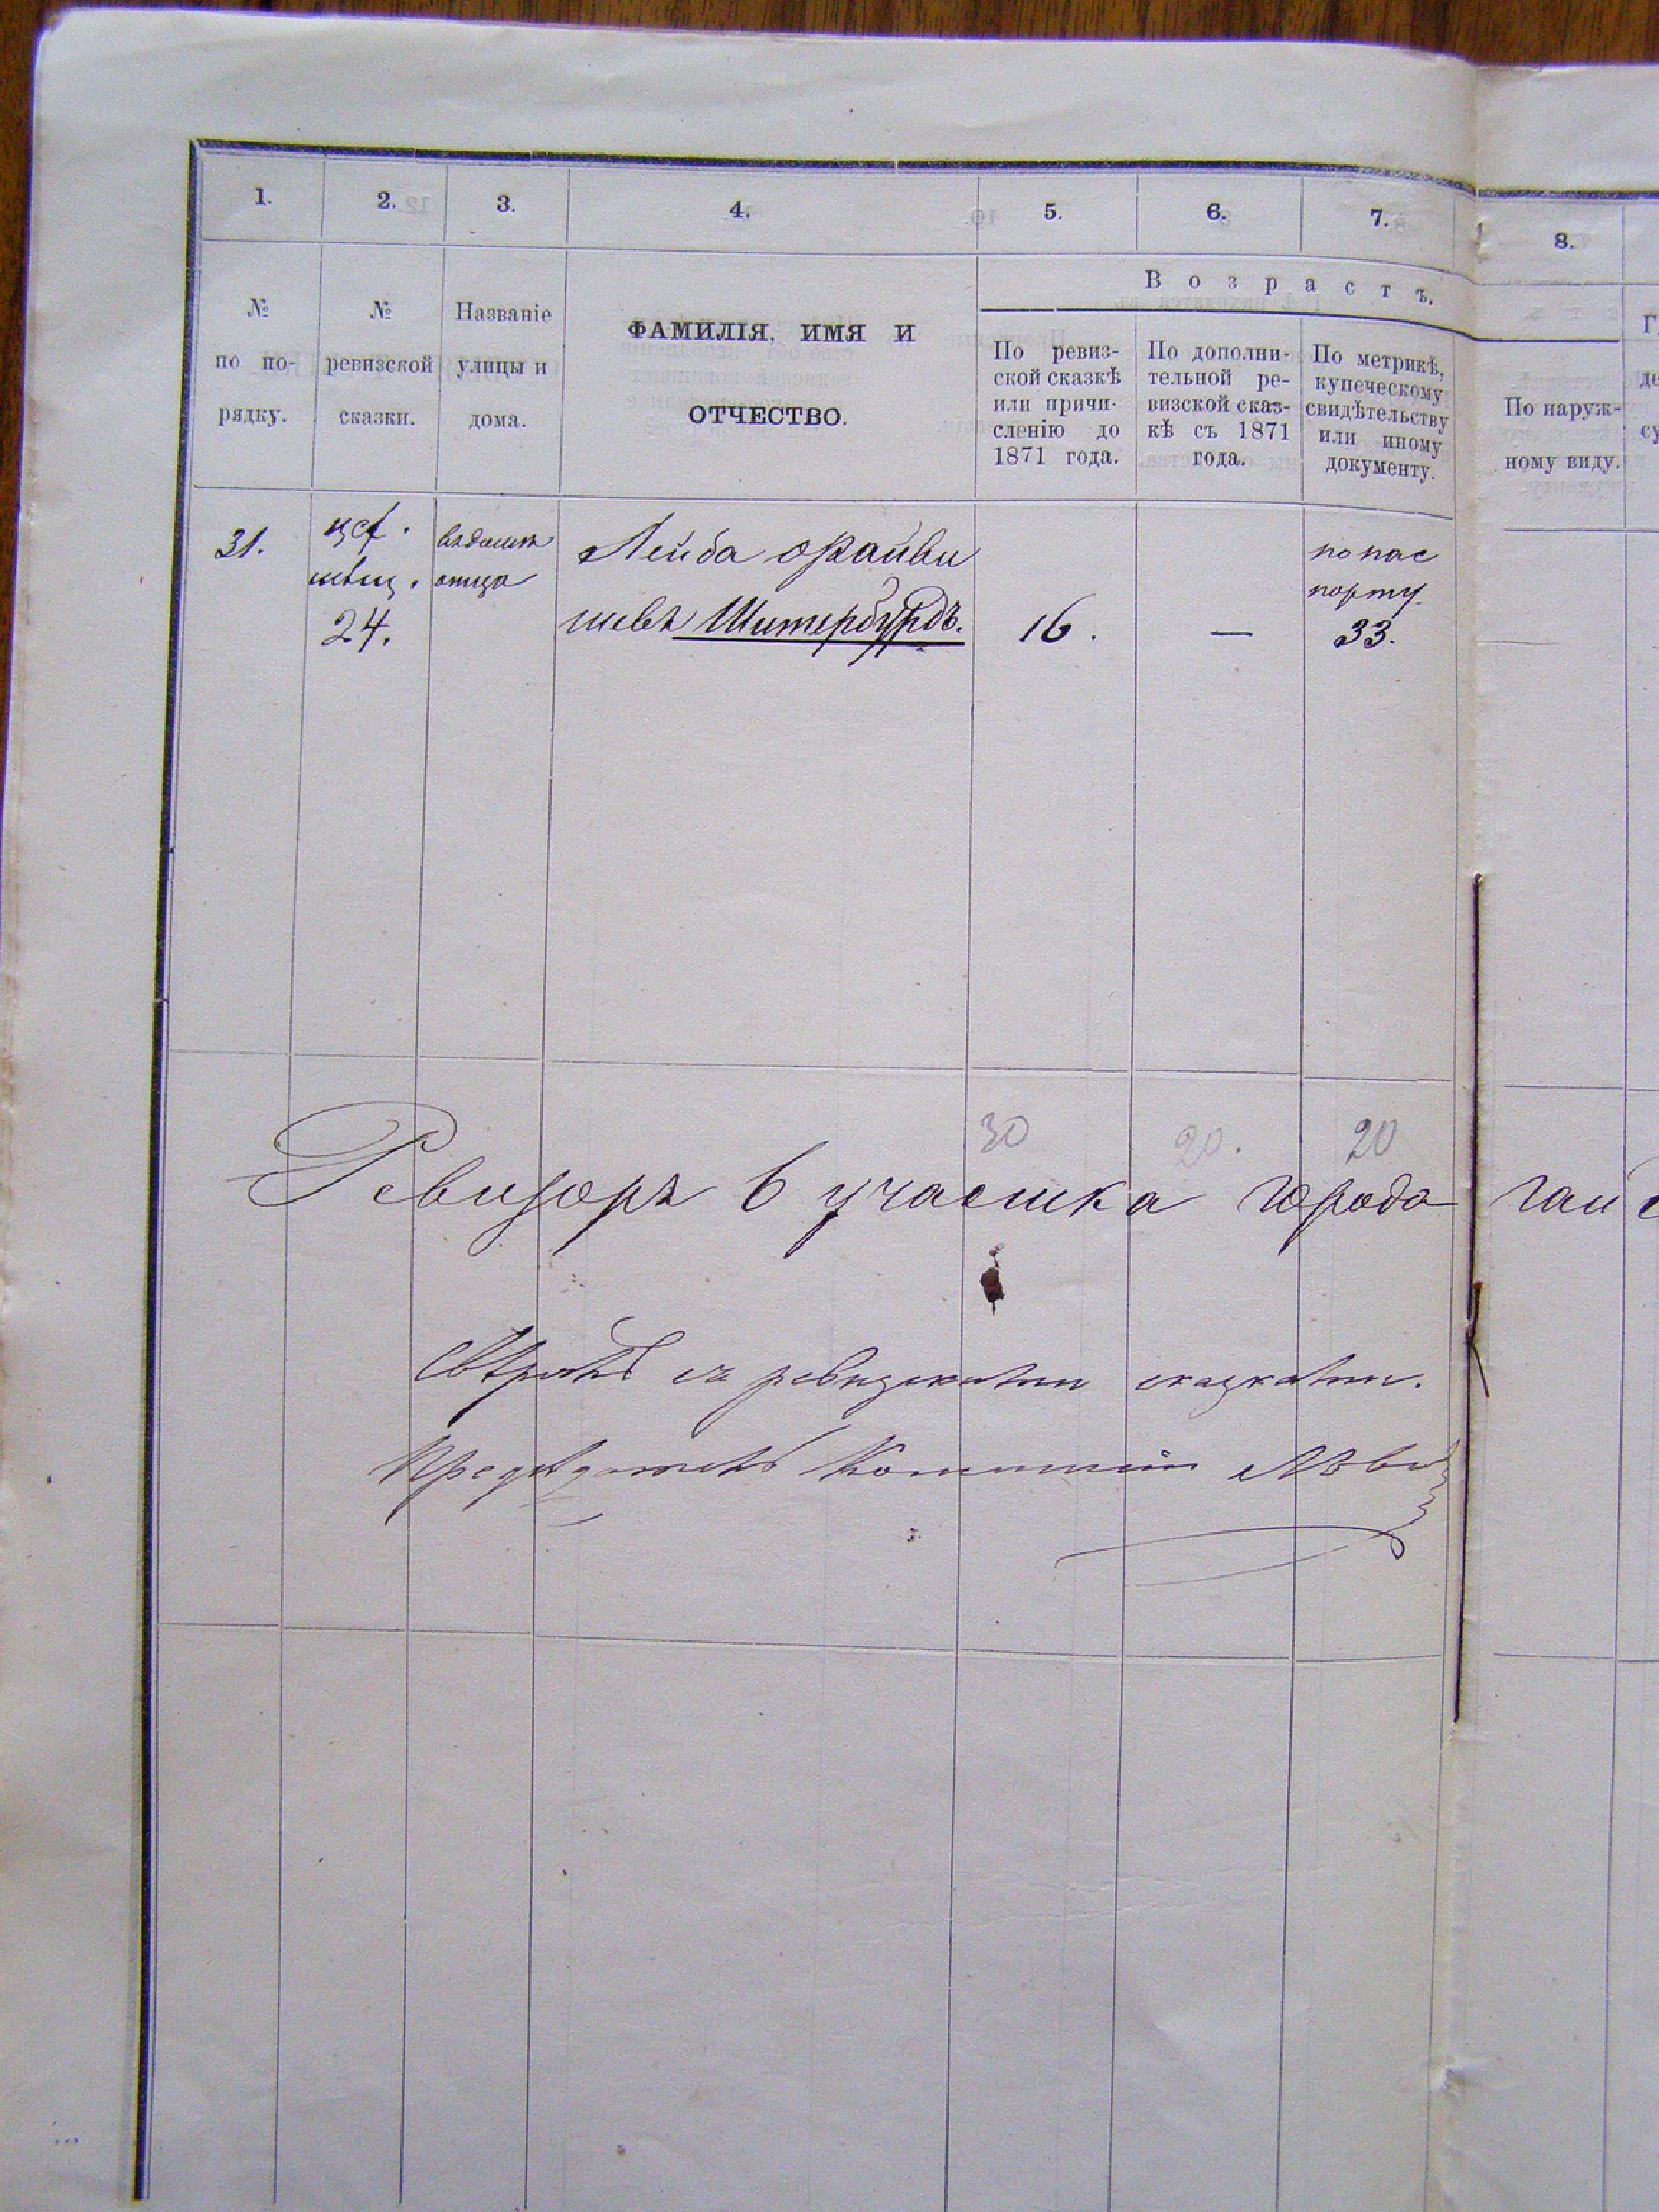 1. 2. 3. 4. 5. 6. 7. 8.
Возрастъ.
№ по по-рядку.
№ ревизской сказки.
Названіе улицы и дома.
ФАМИЛІЯ, ИМЯ И
ОТЧЕСТВО.
По ревиз-
ской сказкѣ
или причи-
сленію до
1871 года.
По дополни-
тельной ре-
визской сказ-
кѣ съ 1871
года.
По метрикѣ,
купеческому
свидѣтельству
или иному
документу.
По наруж-
ному виду.
31.
24.
отца
Лейба
Шитербурдъ.
16.
—
по пас
порту.
33.
30 20. 20
Ревизоръ 6 участка города
Вѣрно съ ревизскими сказками.
Предсѣдатель Коммиссіи